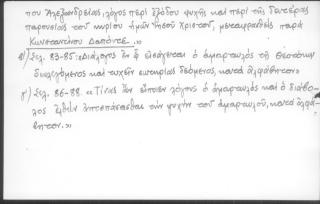 του Ἀλεξανδρείας, λόγος περί ἐξόδου ψυχῆς καί περί τῆς Δευτέρας
παρουσίας τοῦ κυρίου ἡμῶν Ἰησοῦ Χριστοῦ, μεταφρασθείς παρά
Κωνσταντίνου Δαπόντε..»
β') Σελ. 83-85: «Διάλογος ἐν ᾧ ἐλέγχεται ὁ ἁμαρτωλός τῇ Θεοτόκῳ
διαλεγόμενος καί τυχεῖν σωτηρίας δεόμενος, κατά ἀλφάβητον»
γ') Σελ. 86-88. «Τίνας ἄν εἴποιεν λόγους ὁ ἁμαρτωλός καί ὁ διάβο-
λος ἐλθών ἀποσπάσασθαι τήν ψυχήν τοῦ ἁμαρτωλοῦ, κατά ἀλφά-
βητον.»